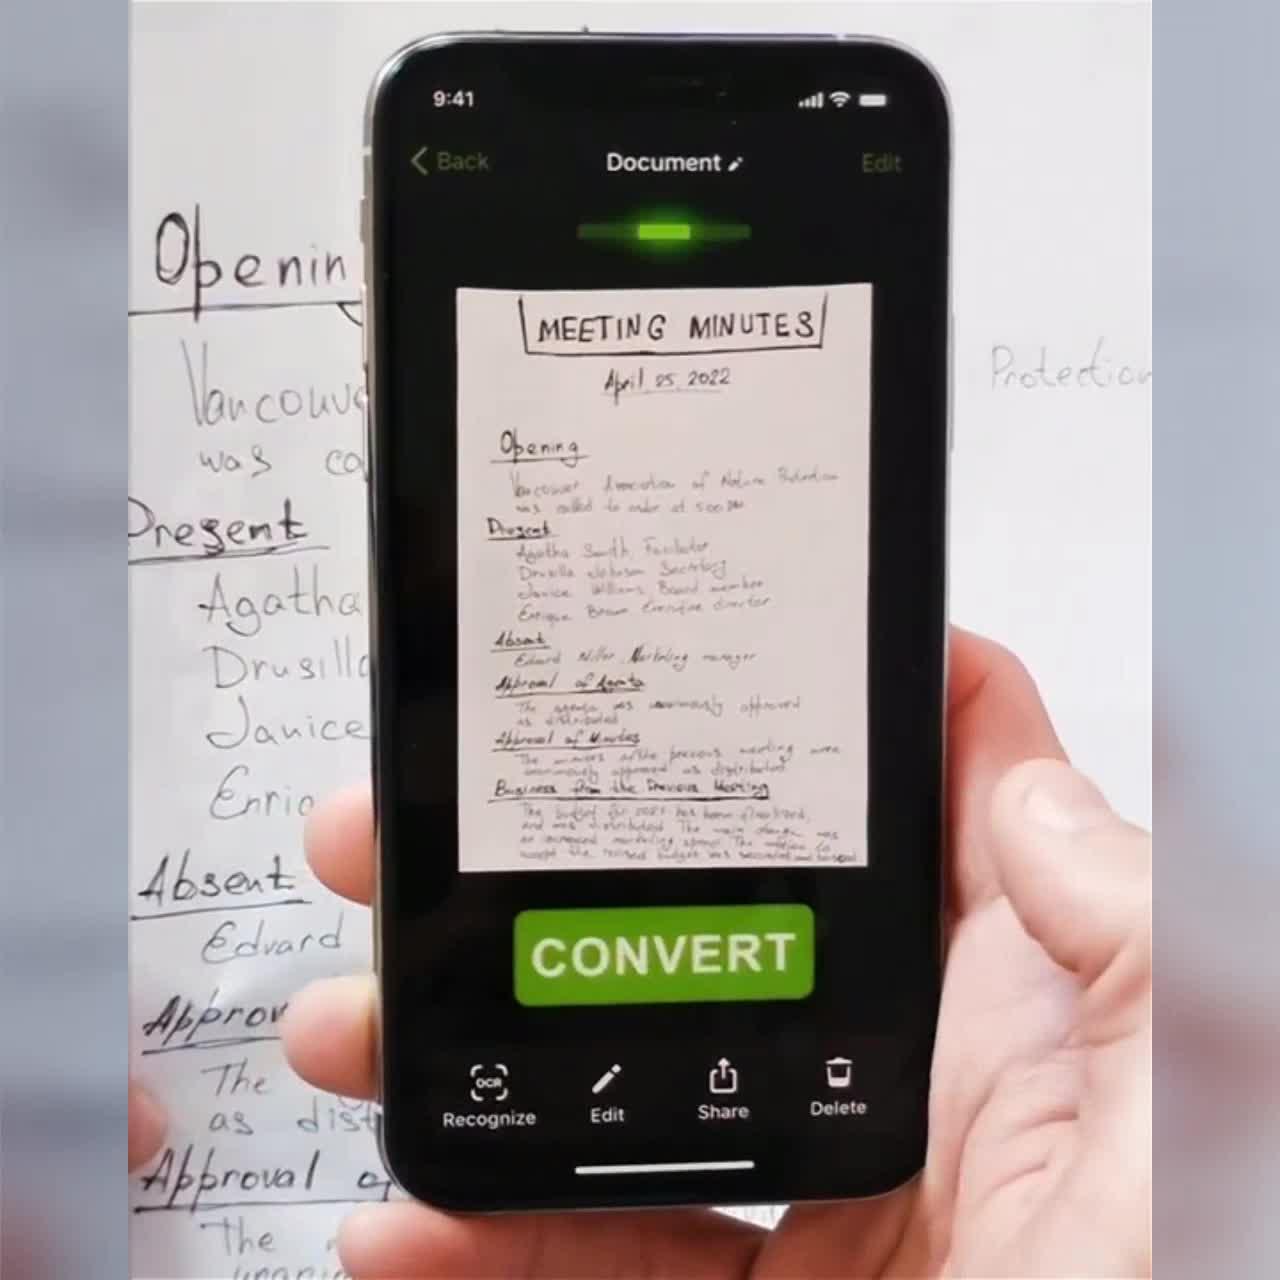 9:41
Back
Document
Edit
MEETING MINUTES
April 25, 2022
Opening
Vancouver Association of Nature Protection
was called to order at 5:00 PM
Present
Agatha Smith, Facilitator
Drusilla Johnson Secretary
Janice Williams, Board member
Enrique Brown Executive director
Absent
Edvard Miller, Marketing manager
Approval of Agenta
The agenda was unanimously approved
as distributed
Approval of Minutes
The minutes of the previous meeting were
unanimously approved as distributed
Business from the Previous Meeting
The budget for 2021 has been finalized,
and was distributed. The main change was
an increased marketing spend. The motion to
accept the revised budget was seconded and
CONVERT
OCR
Recognize
Edit
Share
Delete
Openin
Vancouve
Protection
was ca
Present
Agatha
Drusilla
Janice
Enriq
Absent
Edvard
Approv
The
as dist
Approval of
The
unanim